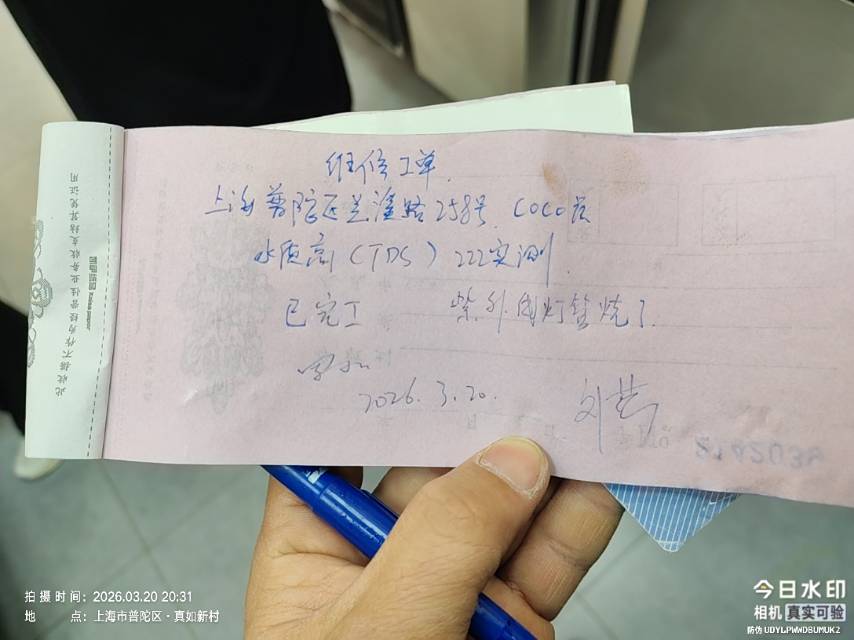 维修工单
上海普陀区兰溪路258号. COCO店
水质高(TDS) 222实测.
已完工 紫外线灯管烧了
2026.3.20.
此收据不作为经营性业务收支结算凭证用
拍摄时间: 2026.03.20 20:31
地点: 上海市普陀区·真如新村
今日水印
相机 真实可验
防伪 UDYLPWWDBUMUKZ